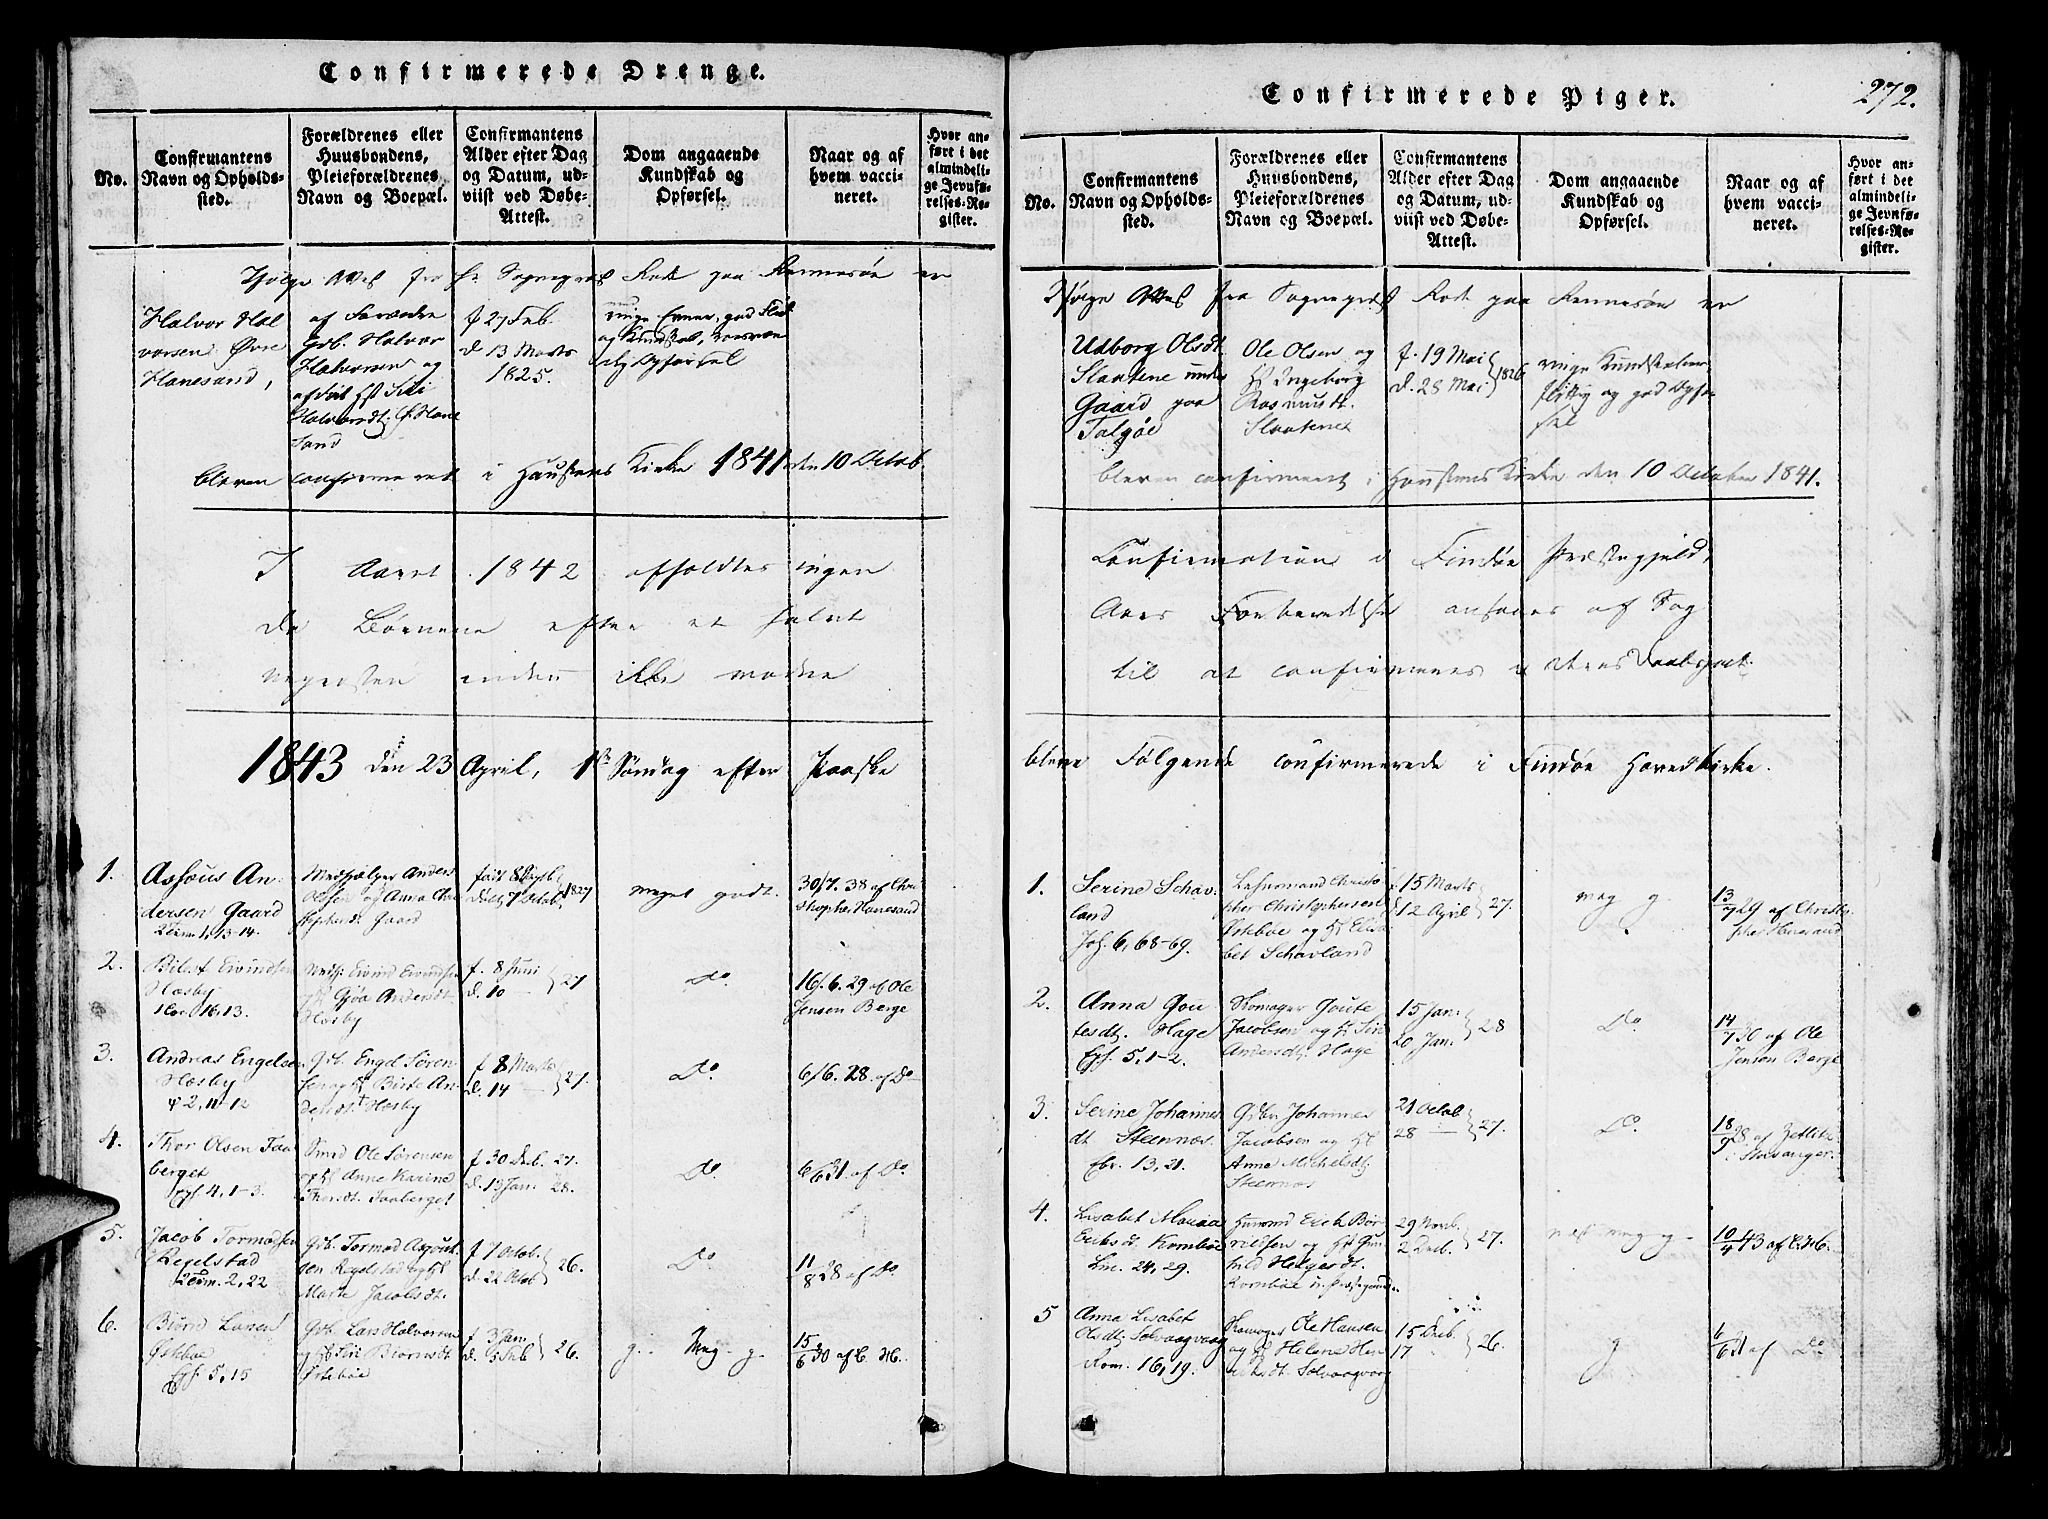 Confirmerede Drenge.
No.
Confirmantens
Navn og Opholds-
sted.
Forældrenes eller
Huusbondens,
Pleieforældrenes
Navn og Boepæl.
Confirmantens
Alder efter Dag
og Datum, ud-
viist ved Døbe-
Attest.
Dom angaaende
Kundskab og
Opførsel.
Naar og af
hvem vacci-
neret.
Hvor an-
ført i det
almindeli-
ge Jevnfø-
relses-Re-
gister.
Ifølge Attest fra Hr Sognepræst Rode paa Rennesøe er
Halvor Hal
vorsen Øvre
Hanesand,
af Forældre
Gdb. Halvor
Halvorsen og
Halvorsdt; Ø. Hane
sand
f 27 Feb.
d. 13 Marts
1825.
ringe Evner, god Flid
og Kundskab,
lig Opførsel
bleven confirmeret i Haustens Kirke 1841 den 10 Octob.
I Aaret 1842 afholdtes ingen
da Børnene efter et halvt
inden ikke
1843 den 23 April, 1ste Søndag efter Paaske
1.
Asseus An-
dersen Gaard
2 Tim. 1, 13-14.
Medhjelper Anders
Olsen og Anna Chri
stophersdt; Gaard
født 8 Septb
Døbt 7 Octob. 1827
meget godt.
30/7. 38 af Chri
stopher Hanesand
2.
Eivindsen
Hæsby
1 Cor. 16, 13.
Medhj. Eivind Eivindsen
og H Gjøa Andersdt
Hæsby
f. 8 Juni
d. 10 — 27
Do
16/6. 29 af Ole
Jensen Berge
3.
Andreas Engelsen
Hæsby
ψ 2, 11-12
Gdb. Engel Søren
sen og H Birte An-
dersdt Hæsby
f 8 Marts
d. 14 — 27.
Do
6/6. 28. af Do
4.
Thor Olsen Faa
berget
Eph 4, 1-3.
Smed Ole Sørensen
og H Anne Karine
Thorsdt. Faaberget
f 30 Decb. 27.
d. 13 Jan. 28.
Do
6/6 31 af Do
5.
Jacob Tormodsen
Regelstad
2 Tim. 2, 22
Gdb. Tormod Asseus
sen Regelstad og H
Marte Jacobsdt.
f 7 Octob.
d. 22 Octob 26.
Do
11/8 28 af Do
6.
Biørn Larsen
Østebøe
Eph. 5, 15
Gdb. Lars Halvorsen
og H Siri Biørnsdt
Østebøe
f 3 Jan.
d. 5 Feb 26.
g. - Meg - g.
15/6 30 af C. H.
Confirmerede Piger.
272.
No.
Confirmantens
Navn og Opholds-
sted.
Forældrenes eller
Huusbondens,
Pleieforældrenes
Navn og Boepæl.
Confirmantens
Alder efter Dag
og Datum, ud-
viist ved Døbe-
Attest.
Dom angaaende
Kundskab og
Opførsel.
Naar og af
hvem vacci-
neret.
Hvor an-
ført i det
almindeli-
ge Jevnfø-
relses-Re-
gister.
Ifølge Attest fra Sognepræst Rode paa Rennesøe er
Udborg Olsdt.
Slaatene under
Gaard paa
Talgøe
Ole Olsen og
H Ingeborg
Rasmusdt.
Slaatene
f. 19 Mai
d. 28 Mai 1826
ringe Kundskaber
flittig og god Opfør
sel
bleven confirmeret i Haustens Kirke den 10 October 1841.
Confirmation i Findøe Præstegjeld,
Aars Forberedelse ansaaes af Sog
til at confirmeres
bleve Følgende confirmerede i Findøe Hovedkirke.
1.
Serine Schav-
land
Joh. 6, 68-69.
Lehnsmand Christo
pher Christophersen
Østebøe og H Elisa
bet Schavland
f 15 Marts
12 April 27.
meg g.
13/7 29 af Christo
pher Hanesand
2.
Anna Gou
tesdt; Hage
Eph. 5, 1-2.
Skomager Goute
Jacobsen og H Siri
Andersdt; Hage
15 Jan.
20 Jan. 28
Do
14/7 30 af Ole
Jensen Berge
3.
Serine Johannes
dt Steennæs.
Ebr. 13, 21.
Gdbr Johannes
Jacobsen og H
Anne Michelsdt;
Steennæs
21 Octob
28 — 27.
Do.
18/9 28. af Zetlitz
i Stavanger.
4.
Lisabet Maria
Eriksdt Kornbøe
Luc. 24, 29.
Huusmd Erich Bør-
rildsen og H Gun
hild Helgesdt.
Kornbøe u. Præstegaard.
29 Novb.
2 Decb. 27.
næst meg g -
10/4 43 af C. H.
5
Anna Lisabet
Olsdt; Solvaagvaag
Rom. 16, 19.
Skomager Ole Hansen
og H Helene Hen
riksdt. Solvaagvaag
15 Decb.
17 26.
g
6/6 31 af Do